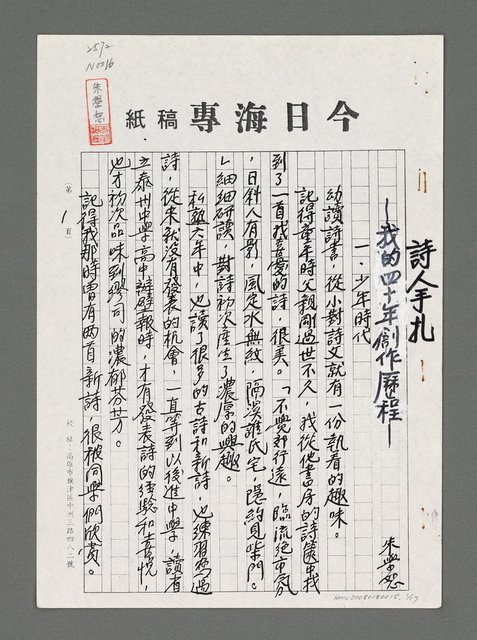 2512
N0016
朱學恕
今日海專稿紙
詩人手扎
—我的四十年創作歷程—
朱學恕
一、少年時代
幼讀詩書，從小對詩文就有一份執着的趣味。
記得童年時父親剛過世不久，我從他書房的詩篋中找
到了一首我喜愛的詩，很美。「不覺郊行遠，臨流絕市氛
，日斜人有影，風定水無紋，隔溪誰氏宅，隱約見柴門。
」細細研讀，對詩初次產生了濃厚的興趣。
私塾六年中，也讀了很多的古詩和新詩，也練習寫過
詩，從來就沒有發表的機會，一直等到以後進中學，讀省
立泰州中學高中辦壁報時，才有發表詩的經驗和喜悅，
也才初次品味到繆司的濃郁芬芳。
記得我那時曾有兩首新詩，很被同學們欣賞。
第1頁
校址：高雄市旗津區中洲三路四八二號
HM120080180015, 1/17